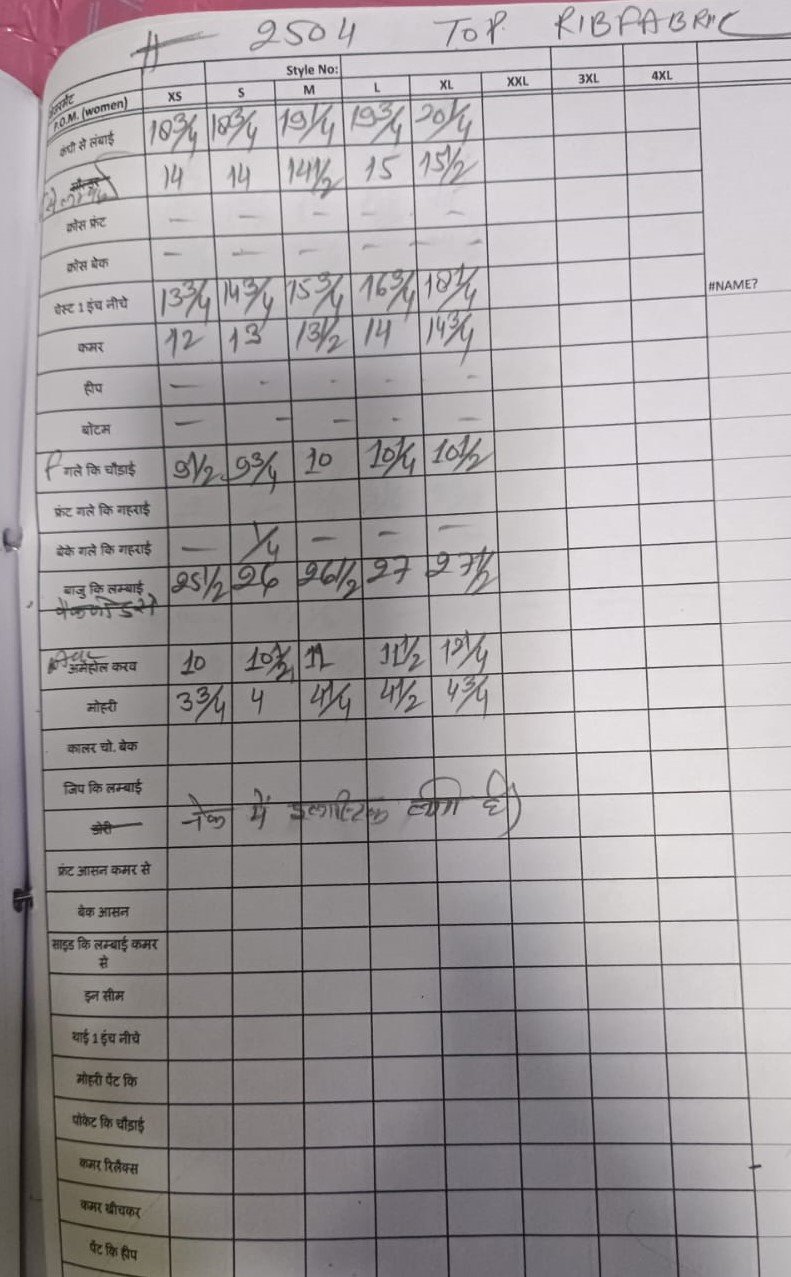 # 2504 TOP. RIBFABRIC
Style No:
P.O.M. (women) XS S M L XL XXL 3XL 4XL
कंधे से लंबाई 18 3/4 18 3/4 19 1/4 19 3/4 20 1/4
14 14 14 1/2 15 15 1/2
क्रोस फ्रंट - - - - -
क्रोस बेक - - - - -
चेस्ट 1 इंच नीचे 13 3/4 14 3/4 15 3/4 16 3/4 18 1/4
#NAME?
कमर 12 13 13 1/2 14 14 3/4
हीप - - - - -
बोटम - - - - -
गले कि चौडाई 9 1/2 9 3/4 10 10 1/4 10 1/2
फ्रंट गले कि गहराई
बेके गले कि गहराई - 1/4 - - -
बाजु कि लम्बाई 25 1/2 26 26 1/2 27 27 1/2
अर्महोल करव 10 10 1/2 11 11 1/2 12 1/4
मोहरी 3 3/4 4 4 1/4 4 1/2 4 3/4
कालर चो. बेक
जिप कि लम्बाई
डोरी नेक में इलास्टिक लगी है)
फ्रंट आसन कमर से
बेक आसन
साइड कि लम्बाई कमर
से
इन सीम
थाई 1 इंच नीचे
मोहरी पेंट कि
पोकेट कि चौड़ाई
कमर रिलैक्स
कमर खीचकर
पेंट कि हीप